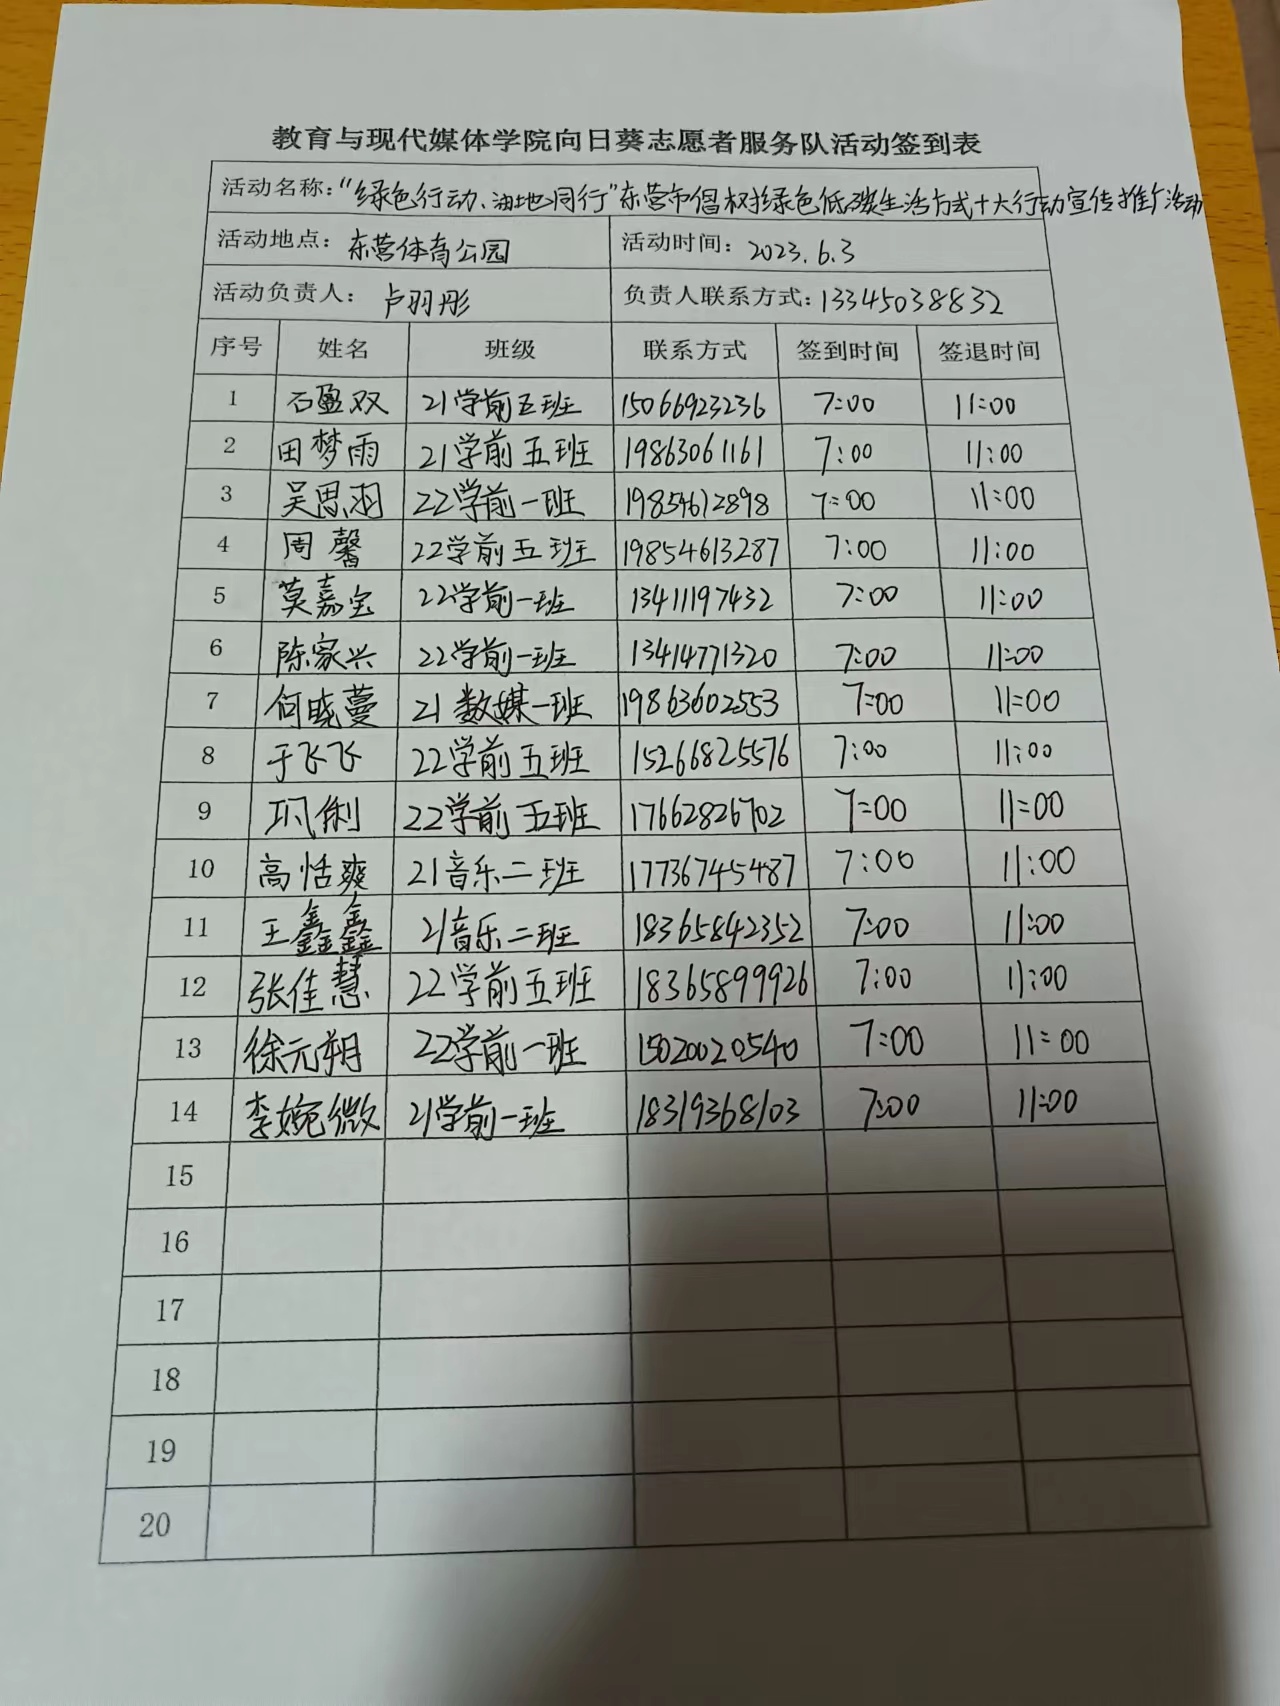 教育与现代媒体学院向日葵志愿者服务队活动签到表
活动名称：“绿色行动、油地同行”东营市倡树绿色低碳生活方式十大行动宣传推广活动
活动地点：东营体育公园 活动时间：2023.6.3
活动负责人：卢羽彤 负责人联系方式：13345038832
序号 姓名 班级 联系方式 签到时间 签退时间
1 石盈双 21学前五班 15066923236 7:00 11:00
2 田梦雨 21学前五班 19863061161 7:00 11:00
3 吴思羽 22学前一班 19854612898 7:00 11:00
4 周馨 22学前五班 19854613287 7:00 11:00
5 莫嘉宝 22学前一班 13411197432 7:00 11:00
6 陈家兴 22学前一班 13414771320 7:00 11:00
7 何晓蔓 21数媒一班 19863602553 7:00 11:00
8 于飞飞 22学前五班 15266825576 7:00 11:00
9 22学前五班 17662826702 7:00 11:00
10 高恬爽 21音乐二班 17736745487 7:00 11:00
11 王鑫鑫 21音乐二班 18365842352 7:00 11:00
12 张佳慧 22学前五班 18365899926 7:00 11:00
13 徐元朔 22学前一班 15020020540 7:00 11:00
14 李婉微 21学前一班 18319368103 7:00 11:00
15
16
17
18
19
20